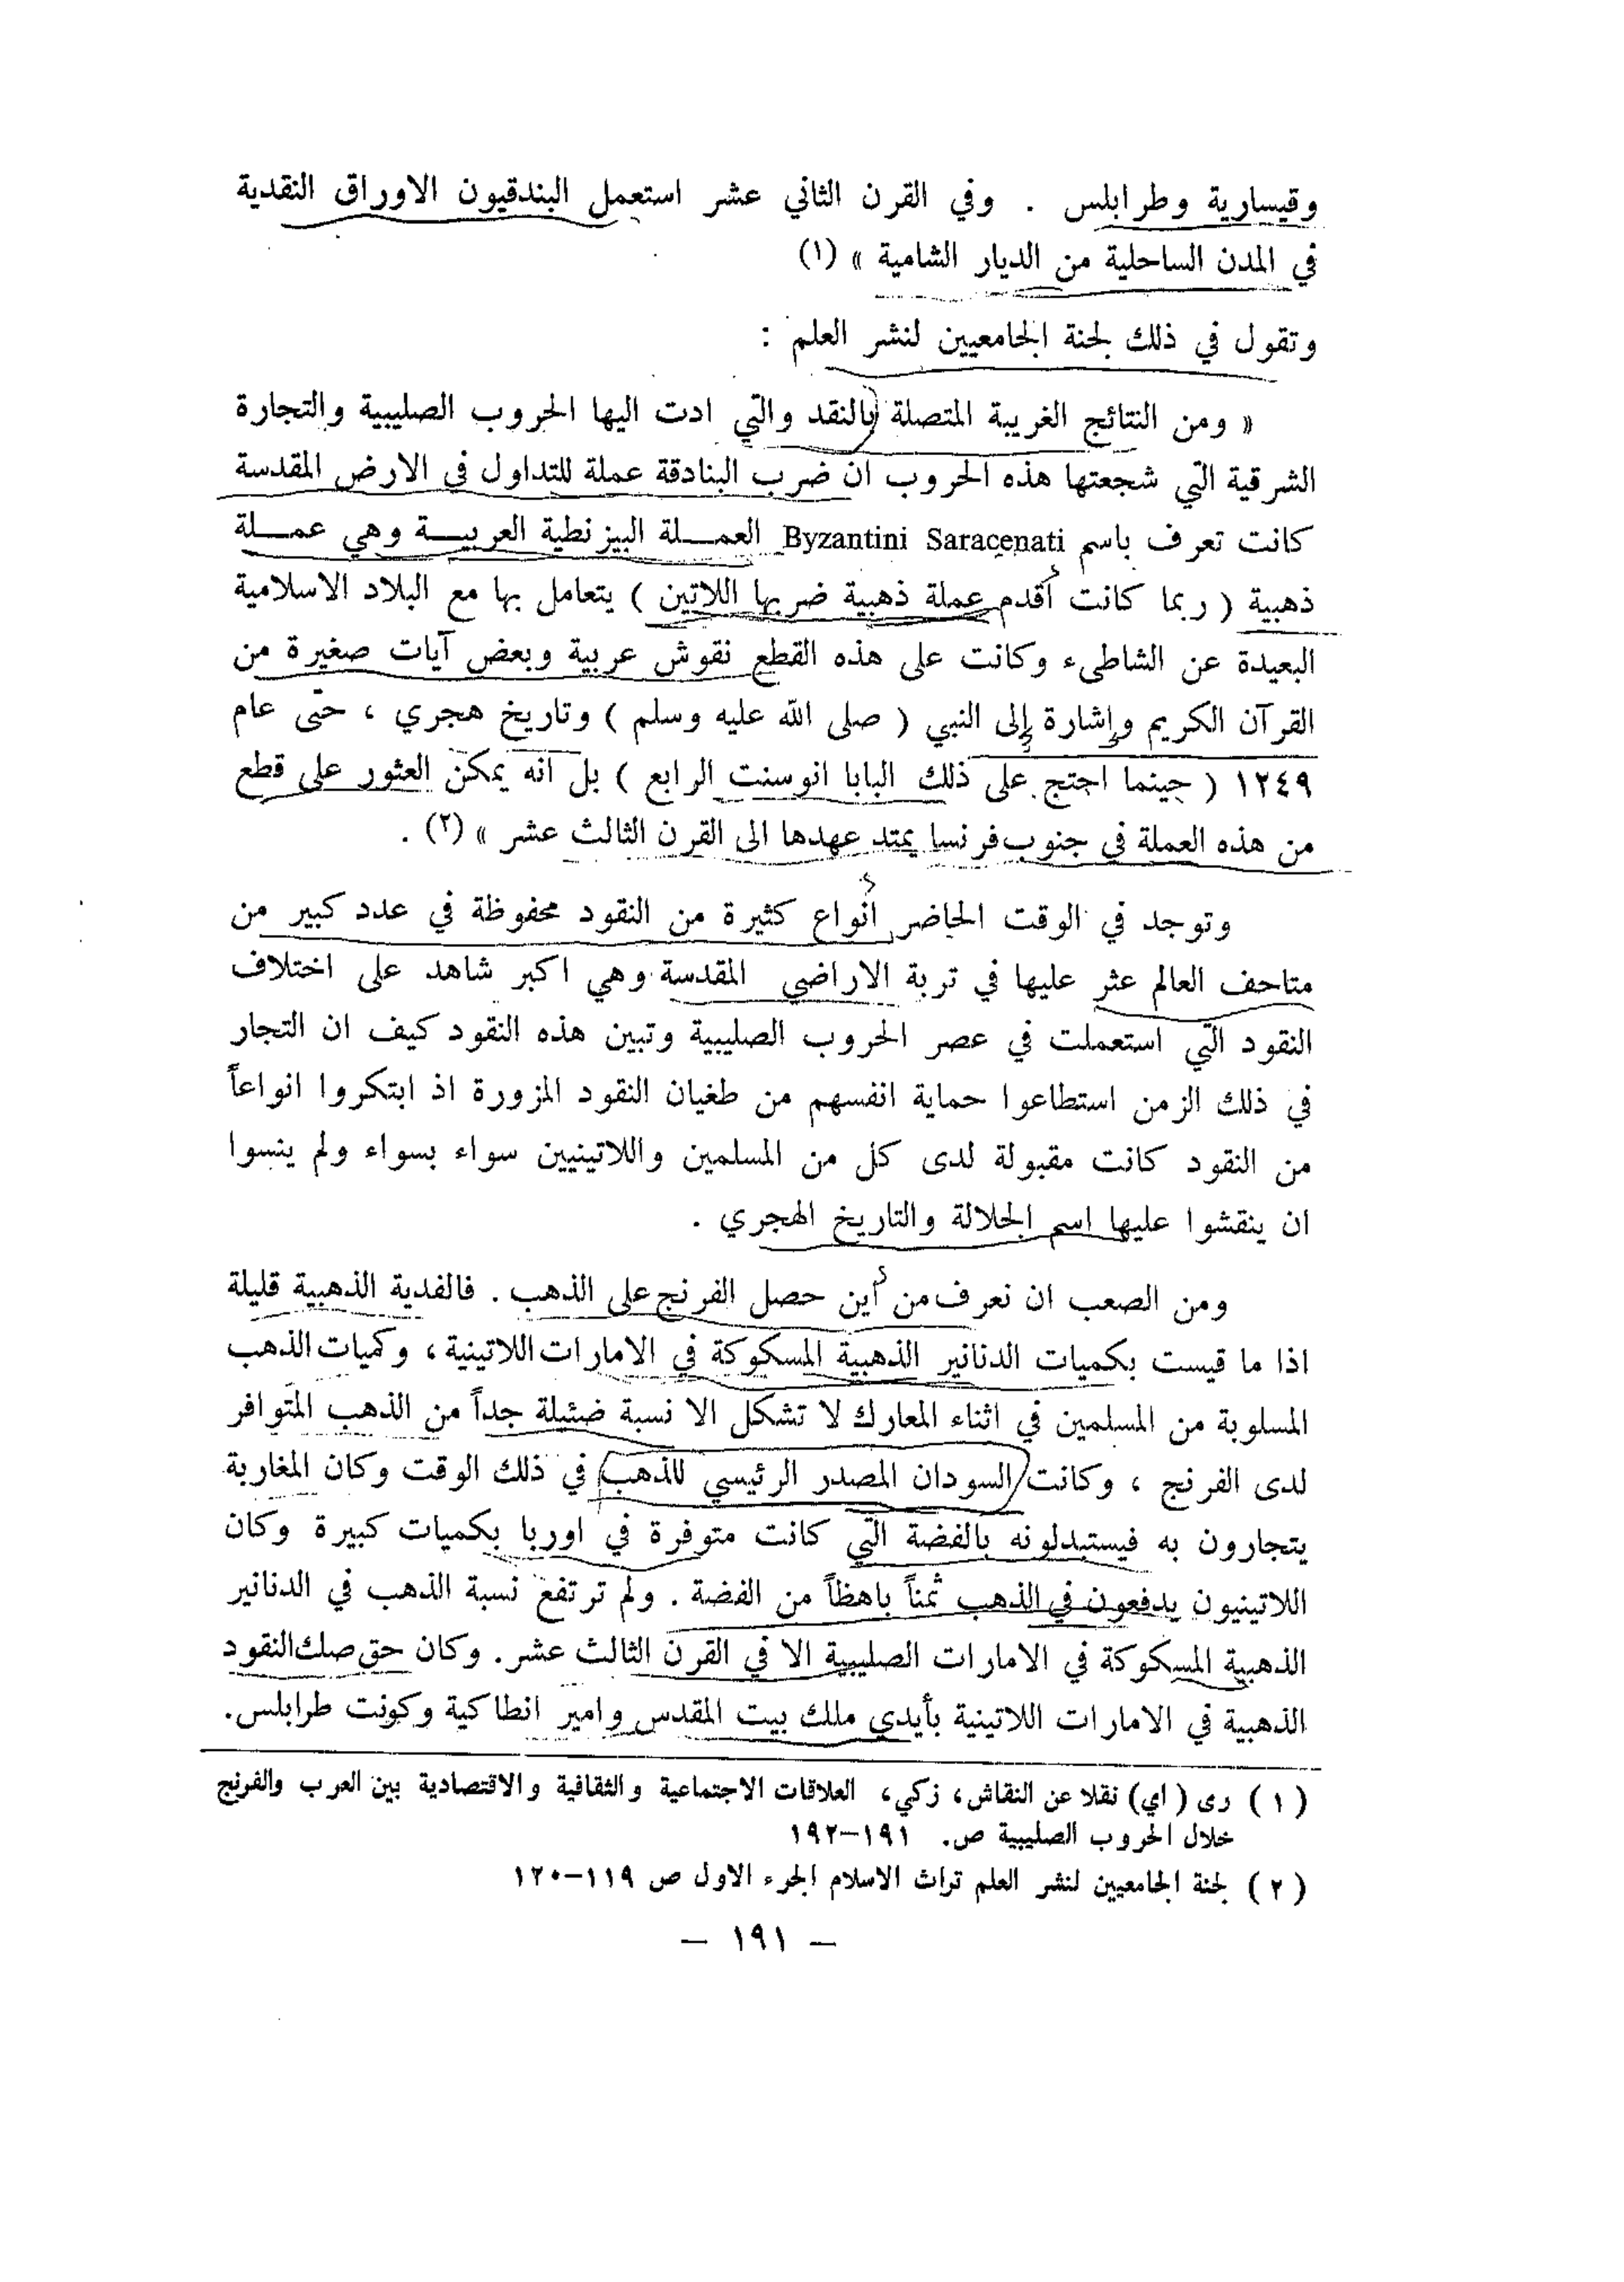 وقيسارية وطرابلس . وفي القرن الثاني عشر استعمل البندقيون الاوراق النقدية
في المدن الساحلية من الديار الشامية » (١)
وتقول في ذلك لجنة الجامعيين لنشر العلم :
« ومن النتائج الغريبة المتصلة بالنقد والتي ادت اليها الحروب الصليبية والتجارة
الشرقية التي شجعتها هذه الحروب ان ضرب البنادقة عملة للتداول في الارض المقدسة
كانت تعرف باسم Byzantini Saracenati العمــلة البيزنطية العربيــة وهي عمــلة
ذهبية ( ربما كانت أقدم عملة ذهبية ضربها اللاتين ) يتعامل بها مع البلاد الاسلامية
البعيدة عن الشاطىء وكانت على هذه القطع نقوش عربية وبعض آيات صغيرة من
القرآن الكريم وإشارة إلى النبي ( صلى الله عليه وسلم ) وتاريخ هجري ، حتى عام
١٢٤٩ ( حينما احتج على ذلك البابا انوسنت الرابع ) بل انه يمكن العثور على قطع
من هذه العملة في جنوب فرنسا يمتد عهدها الى القرن الثالث عشر » (٢) .
وتوجد في الوقت الحاضر أنواع كثيرة من النقود محفوظة في عدد كبير من
متاحف العالم عثر عليها في تربة الاراضي المقدسة وهي اكبر شاهد على اختلاف
النقود التي استعملت في عصر الحروب الصليبية وتبين هذه النقود كيف ان التجار
في ذلك الزمن استطاعوا حماية انفسهم من طغيان النقود المزورة اذ ابتكروا انواعاً
من النقود كانت مقبولة لدى كل من المسلمين واللاتينيين سواء بسواء ولم ينسوا
ان ينقشوا عليها اسم الجلالة والتاريخ الهجري .
ومن الصعب ان نعرف من أين حصل الفرنج على الذهب . فالفدية الذهبية قليلة
اذا ما قيست بكميات الدنانير الذهبية المسكوكة في الامارات اللاتينية ، وكميات الذهب
المسلوبة من المسلمين في اثناء المعارك لا تشكل الا نسبة ضئيلة جداً من الذهب المتوافر
لدى الفرنج ، وكانت السودان المصدر الرئيسي للذهب في ذلك الوقت وكان المغاربة
يتجارون به فيستبدلونه بالفضة التي كانت متوفرة في اوربا بكميات كبيرة وكان
اللاتينيون يدفعون في الذهب ثمناً باهظاً من الفضة . ولم ترتفع نسبة الذهب في الدنانير
الذهبية المسكوكة في الامارات الصليبية الا في القرن الثالث عشر . وكان حق صك النقود
الذهبية في الامارات اللاتينية بأيدي ملك بيت المقدس وامير انطاكية وكونت طرابلس .
(١) رى (اي) نقلا عن النقاش، زكي، العلاقات الاجتماعية والثقافية والاقتصادية بين العرب والفرنج
خلال الحروب الصليبية ص. ١٩١–١٩٢
(٢) لجنة الجامعيين لنشر العلم تراث الاسلام الجزء الاول ص ١١٩–١٢٠
– ١٩١ –